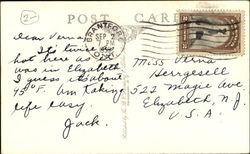 2-
POST CARD
BRANTFORD
SEP 3
Dear Verna
hot here as
was in Elizabeth
I guess it's about
45° F. Am taking
life easy.
Jack.
Miss Verna
Herrgesell
522 Magie Ave.
Elizabeth, N.J.
U.S.A.